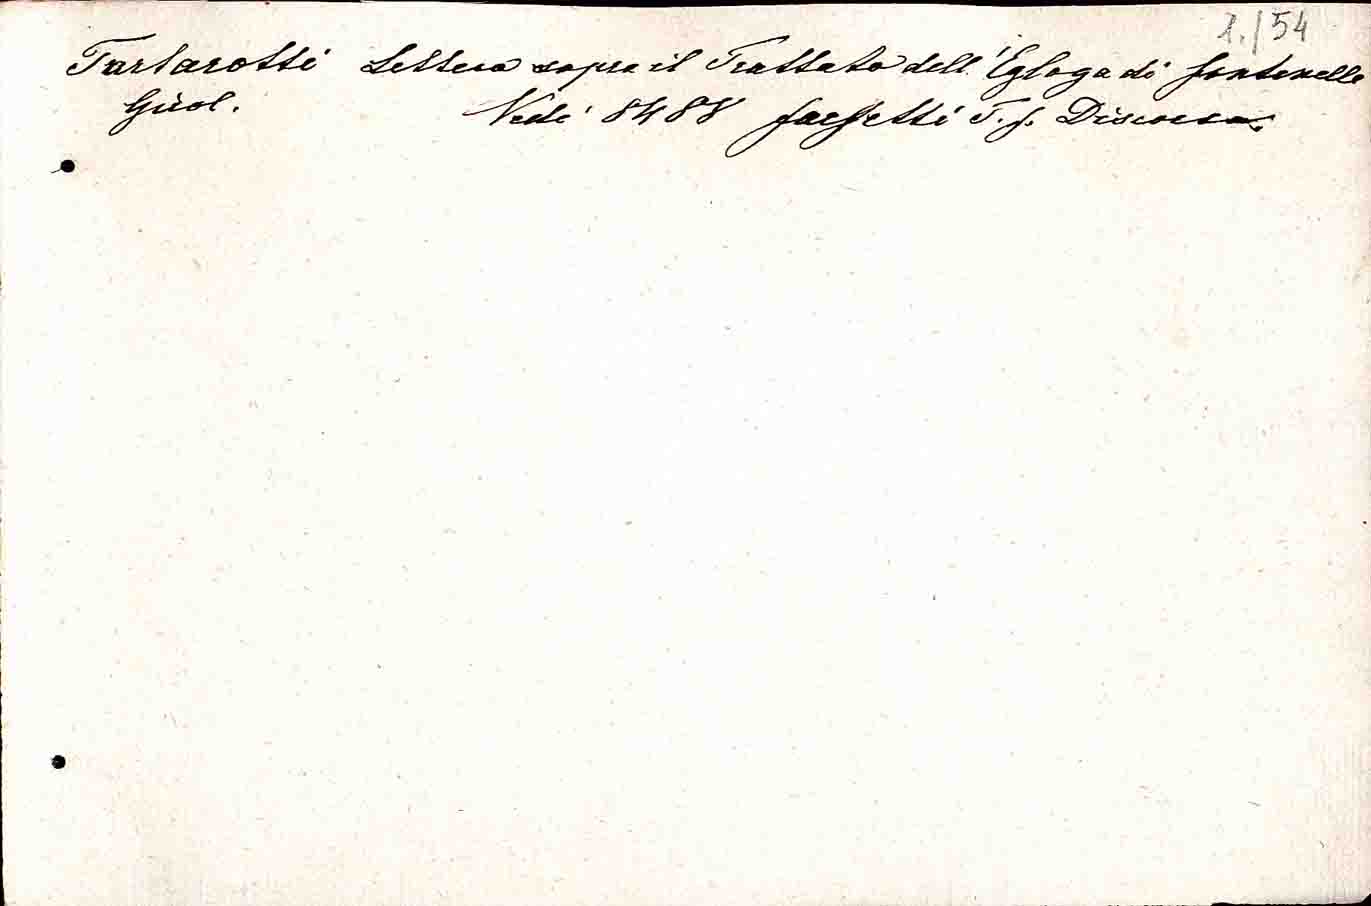 1./54
Tartarotti Lettera sopra il Trattato dell' Egloga di Fontenelle
Girol. Vedi 8488 Farsetti T. J. Discorso.